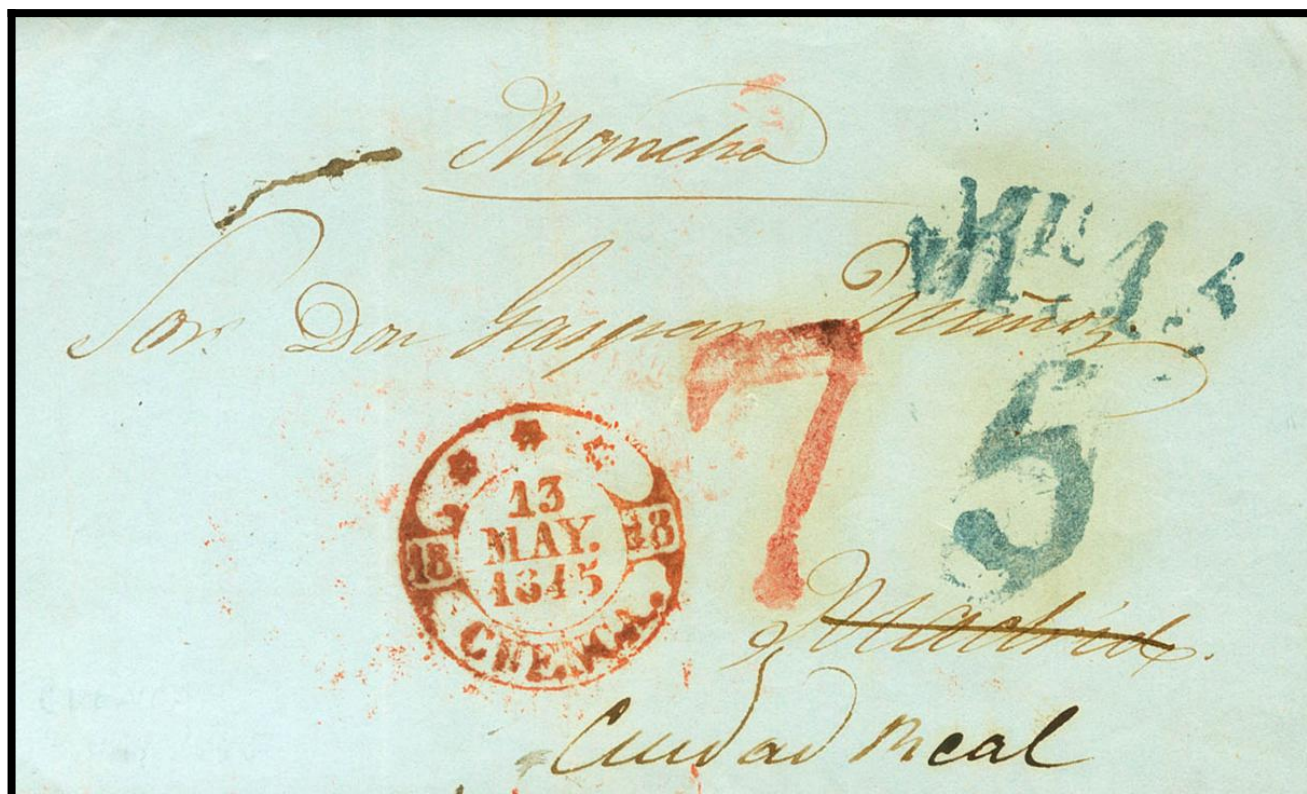 Mancha
Sor Don Gaspar Muñoz
7 5
13
MAY.
1845
18 18
CUENCA.
Madrid.
Ciudad Real